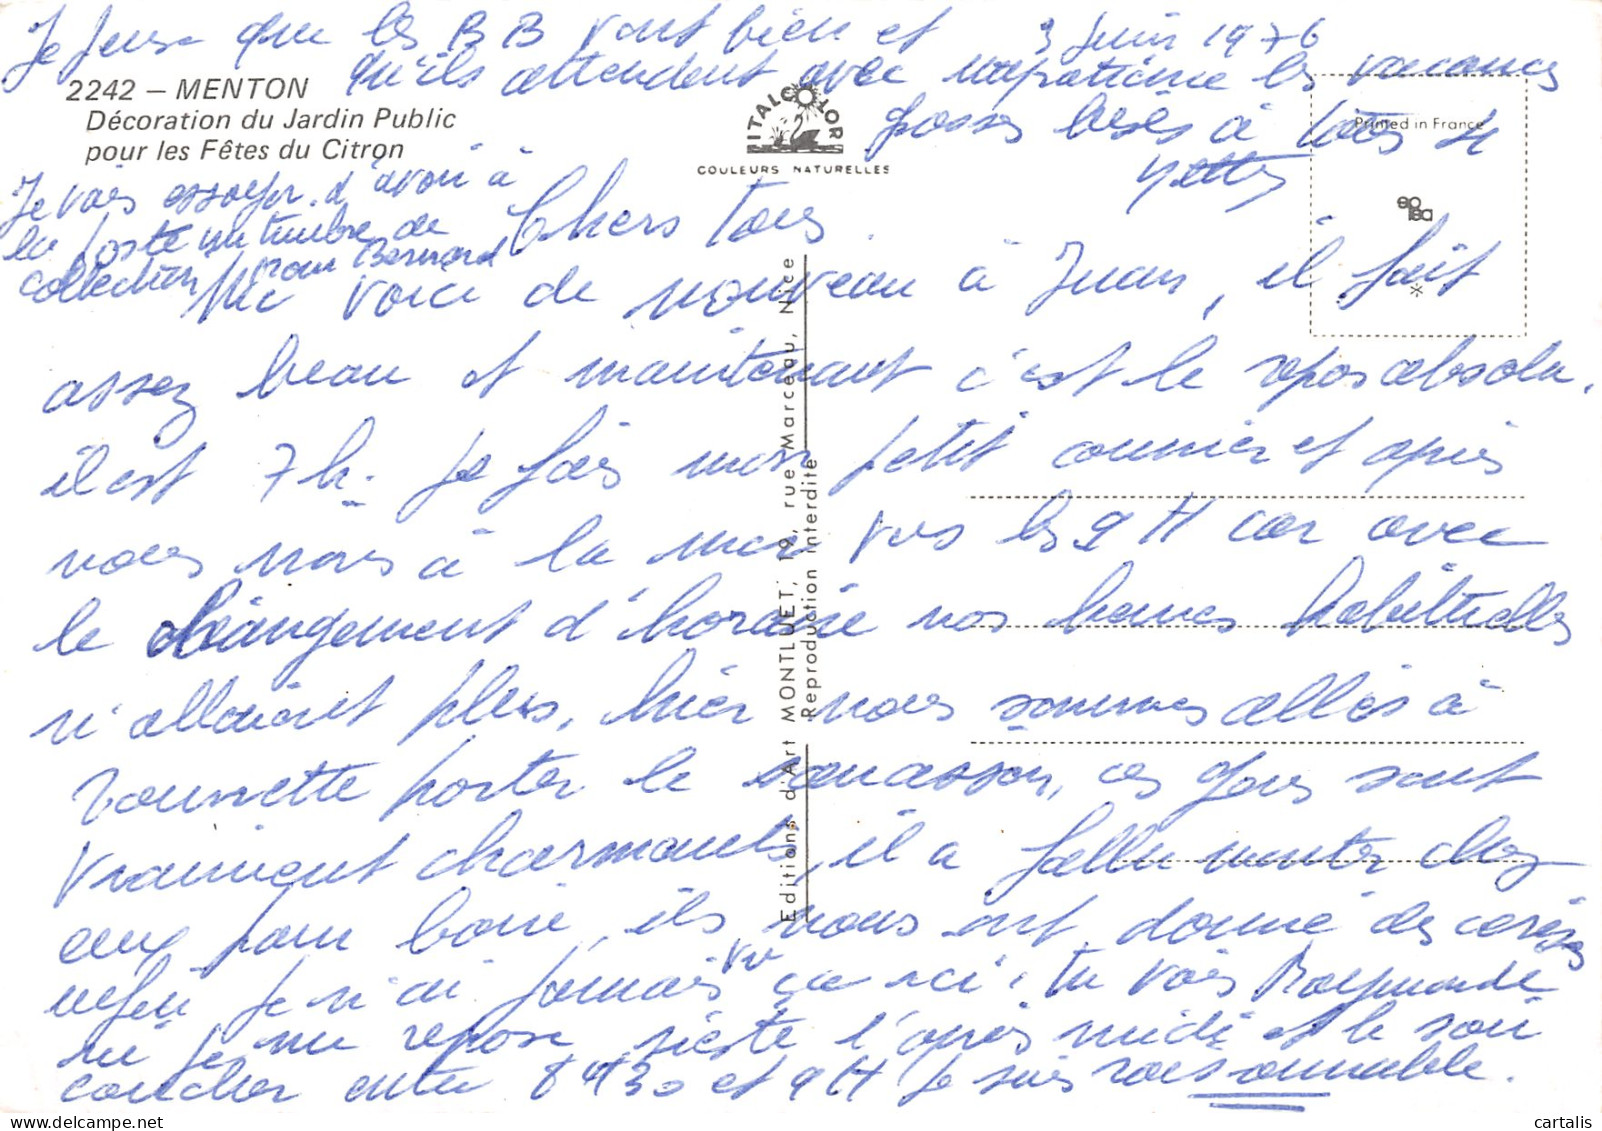 Je pense que les BB vont bien et
3 Juin 1976
qu'ils attendent avec impatience les vacances
grosses bises à tous 4
Yette
2242 — MENTON
Décoration du Jardin Public
pour les Fêtes du Citron
ITALCOLOR
COULEURS NATURELLES
Printed in France
Je vais essayer d'avoir à
la poste un timbre de
collection pour Bernard
Chers tous
Me voici de nouveau à Juan, il fait
assez beau et maintenant c'est le repos absolu.
il est 7h. Je fais mon petit courrier et après
nous irons à la mer vers les 9 H car avec
le changement d'horaire nos heures habituelles
n'allaient plus, hier nous sommes allés à
Tourrette porter le, ces gens sont
vraiment charmants, il a fallu monter chez
eux pour boire, ils nous ont donné des cerises
enfin je n'ai jamais vu ça ici! tu vois Raymonde
je me repose sieste l'après midi et le soir
coucher entre 8H30 et 9H je suis raisonnable.
Editions d'Art MONTLUET, 19, rue Marceau, Nice
Reproduction interdite
cartalis